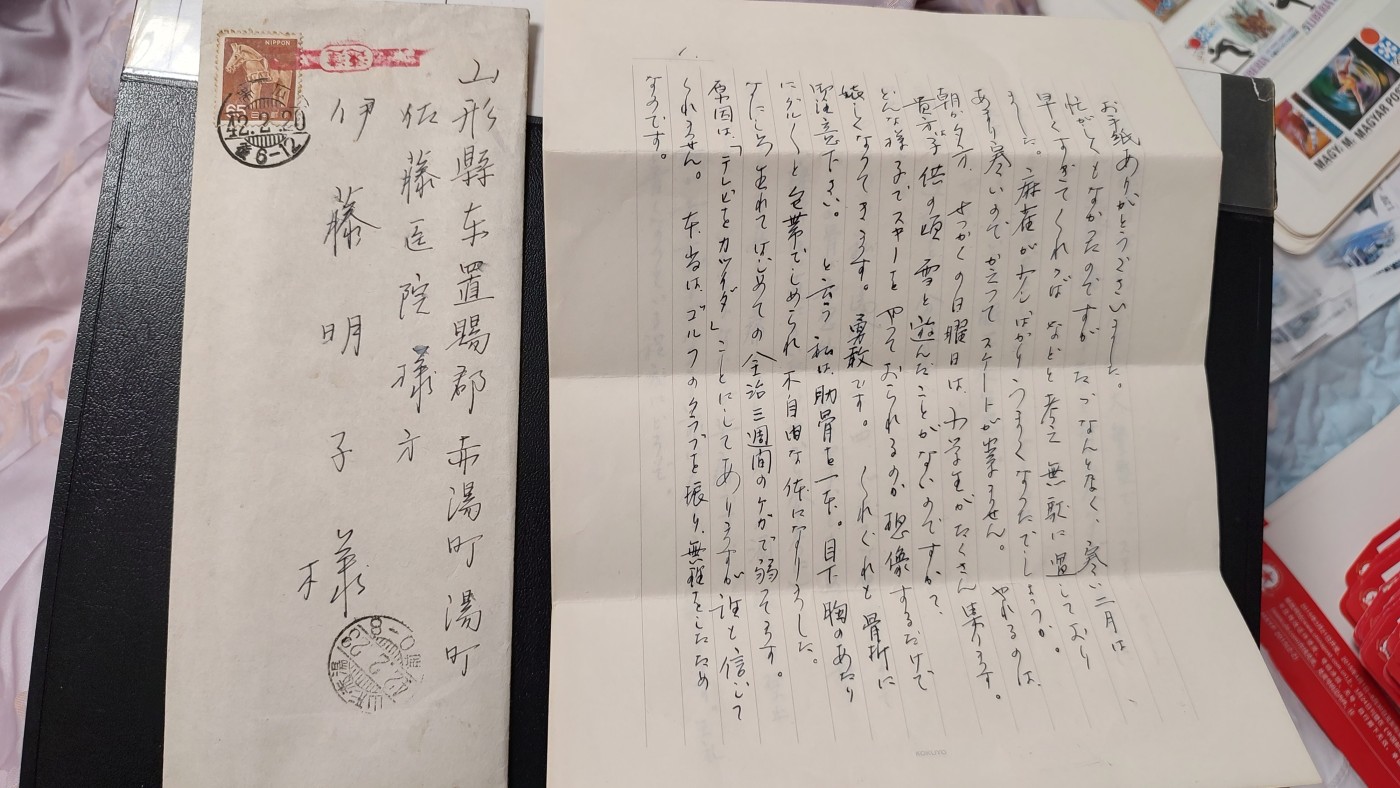 山形縣东置賜郡赤湯町湯町
佐藤医院様方
伊藤明子様
NIPPON
65
42.2.20
后6-12
お手紙ありがとうございました。
忙がしくもなかったのですが ただなんとなく、寒い二月は
早くすぎてくれゝば などと考え 無駄に過しており
ました。麻雀が少しばかりうまくなったでしょうか。
あまり寒いので かえって スケートが出来ません。 やれるのは、
朝か夕方 せっかくの日曜日は 小学生がたくさん集ります。
貴方は子供の頃 雪と遊んだことがないのですか?
どんな様子でスキーを やっておられるのか 想像するだけで
嬉しくなってきます。勇敢です。 くれぐれも 骨折に
御注意下さい。 と云う 私は、肋骨を一本。目下 胸のあたり
にぐるぐると包帯でしめられ 不自由な体になりました。
なにしろ 生れてはじめての 全治三週間のケガで弱ってます。
原因は、「テレビをカツイダ」ことにしてありますが 誰も信じて
くれません。 本当は、ゴルフのクラブを振り、無理をしたため
なのです。
MAGY. M. MAGYAR POS